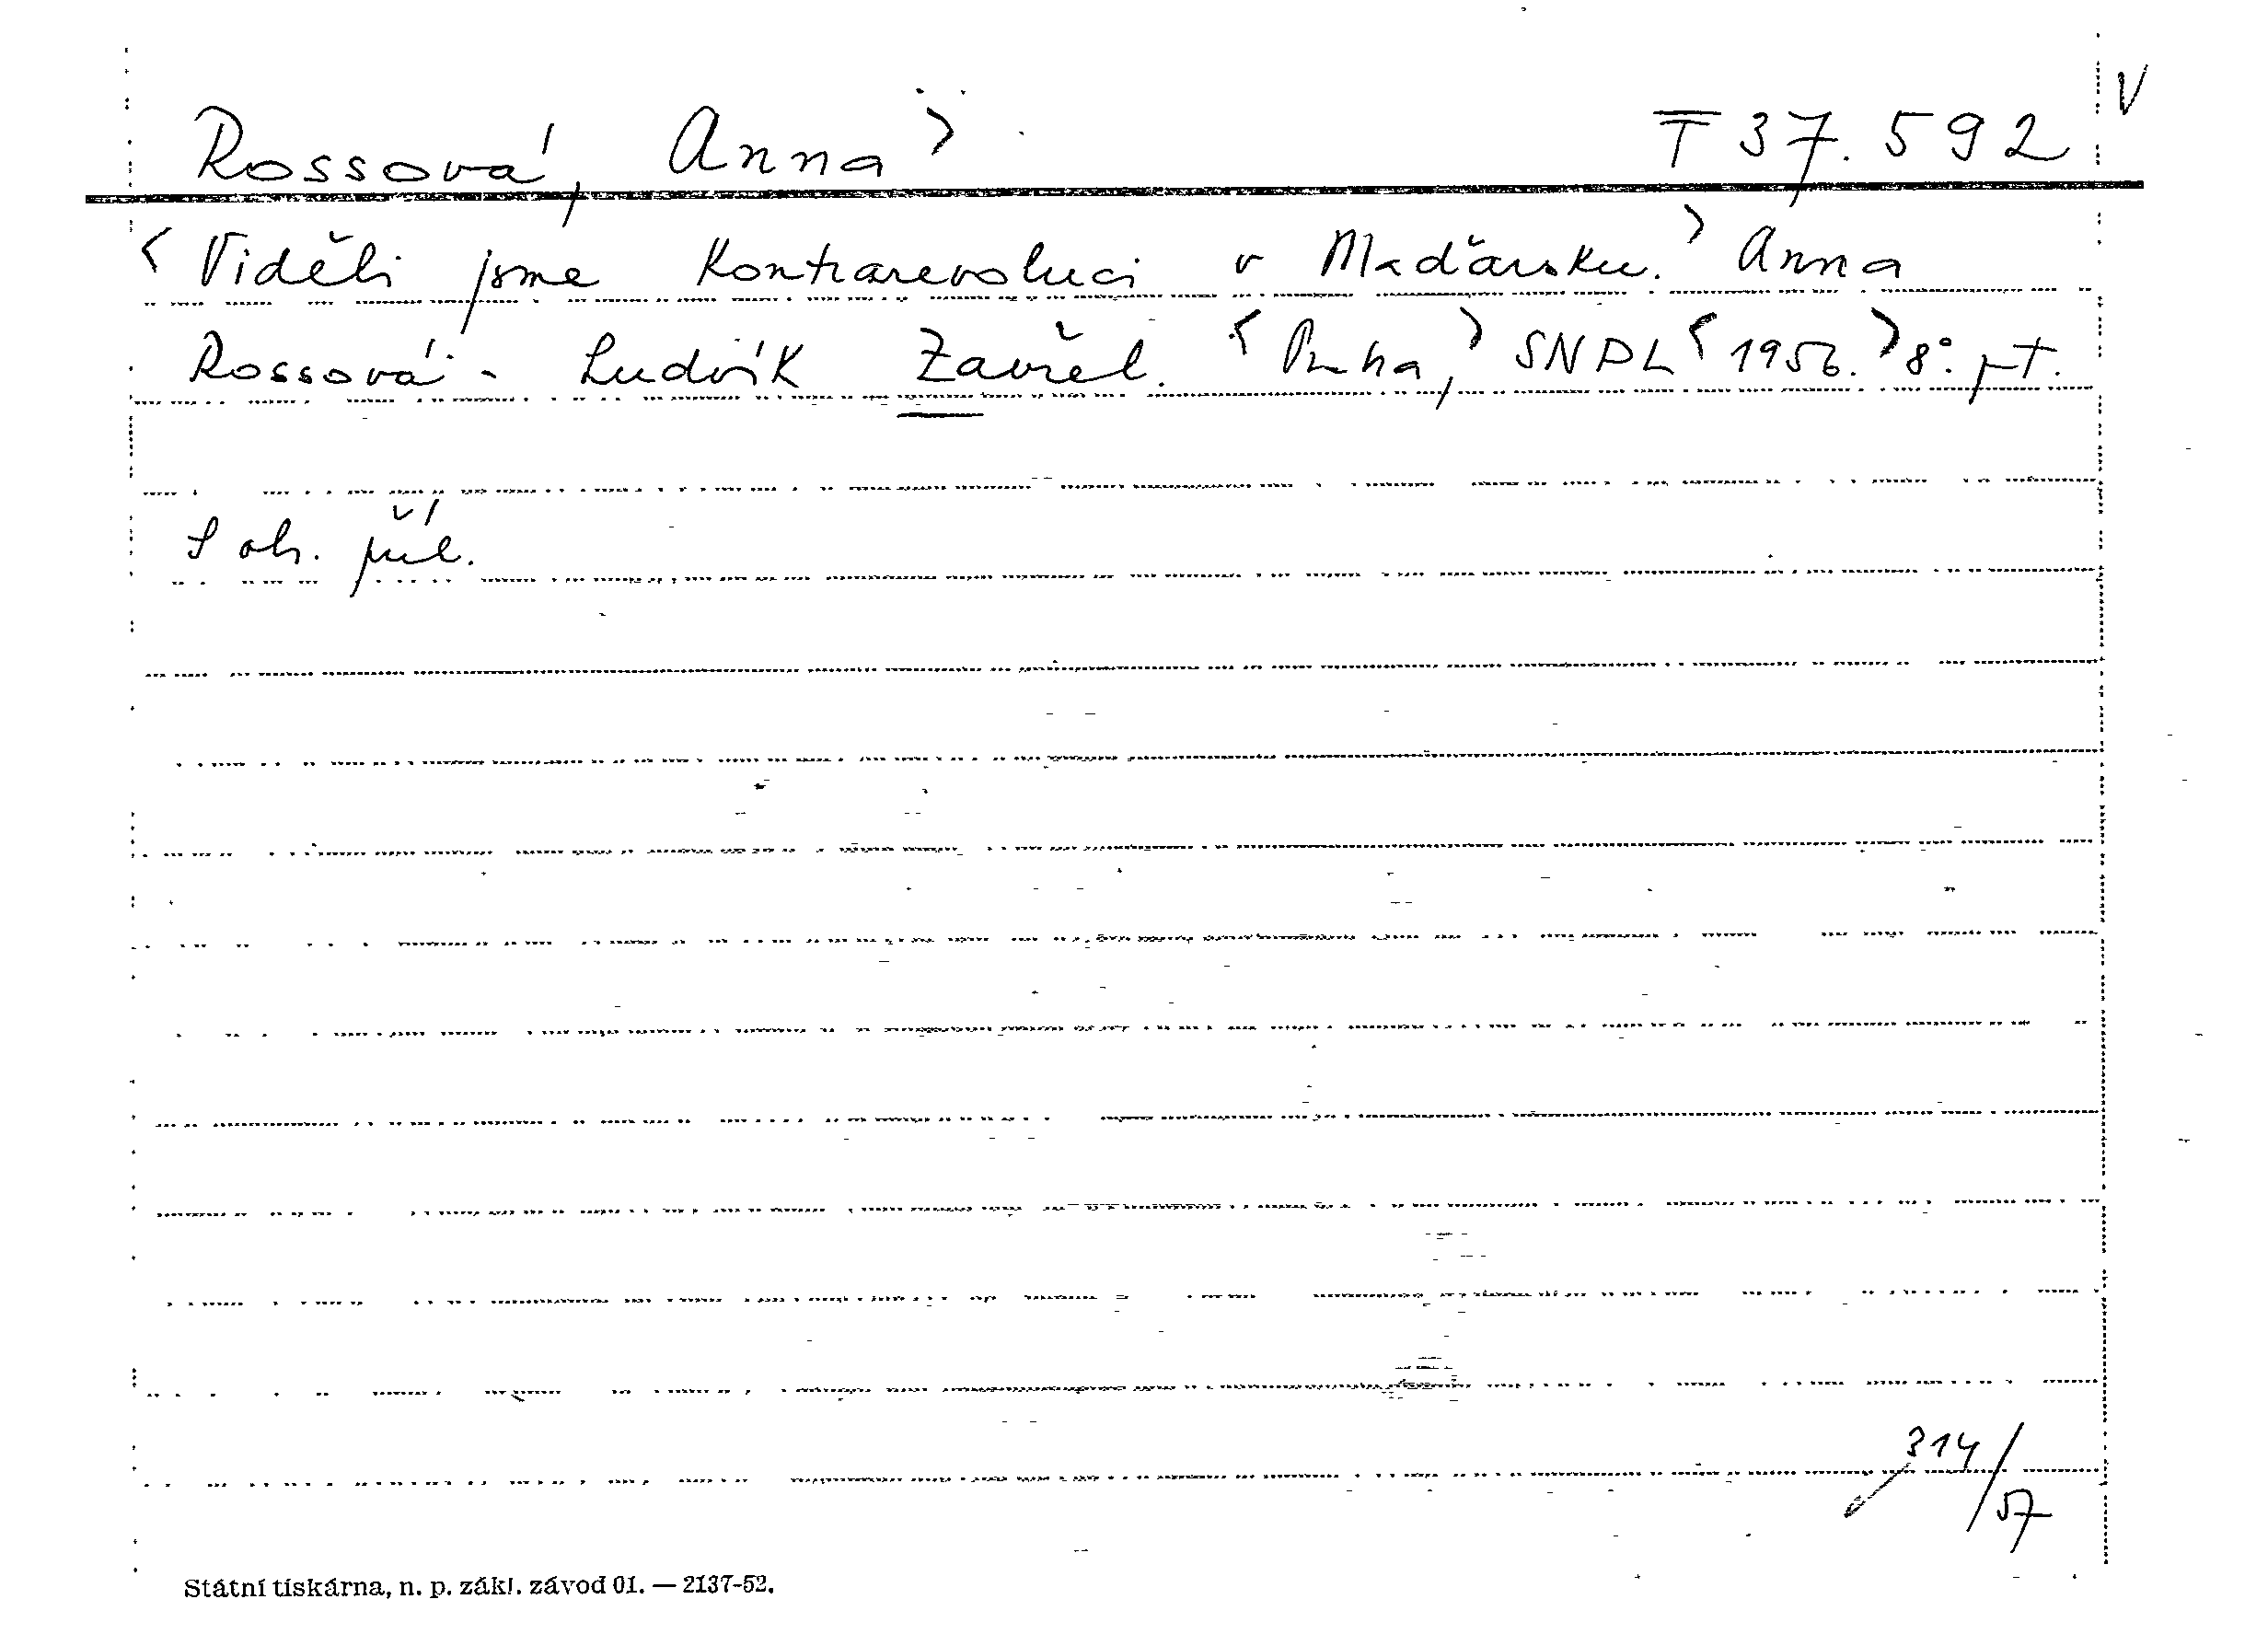 Rossová, Anna> T 37.592 V
<Viděli jsme Kontrarevoluci v Maďarsku.> Anna
Rossová - Ludvík Zavřel. <Praha,> SNPL <1956.> 8°.
S obr. příl.
314/57
Státní tiskárna, n. p. zákl. závod 01. — 2137-52.